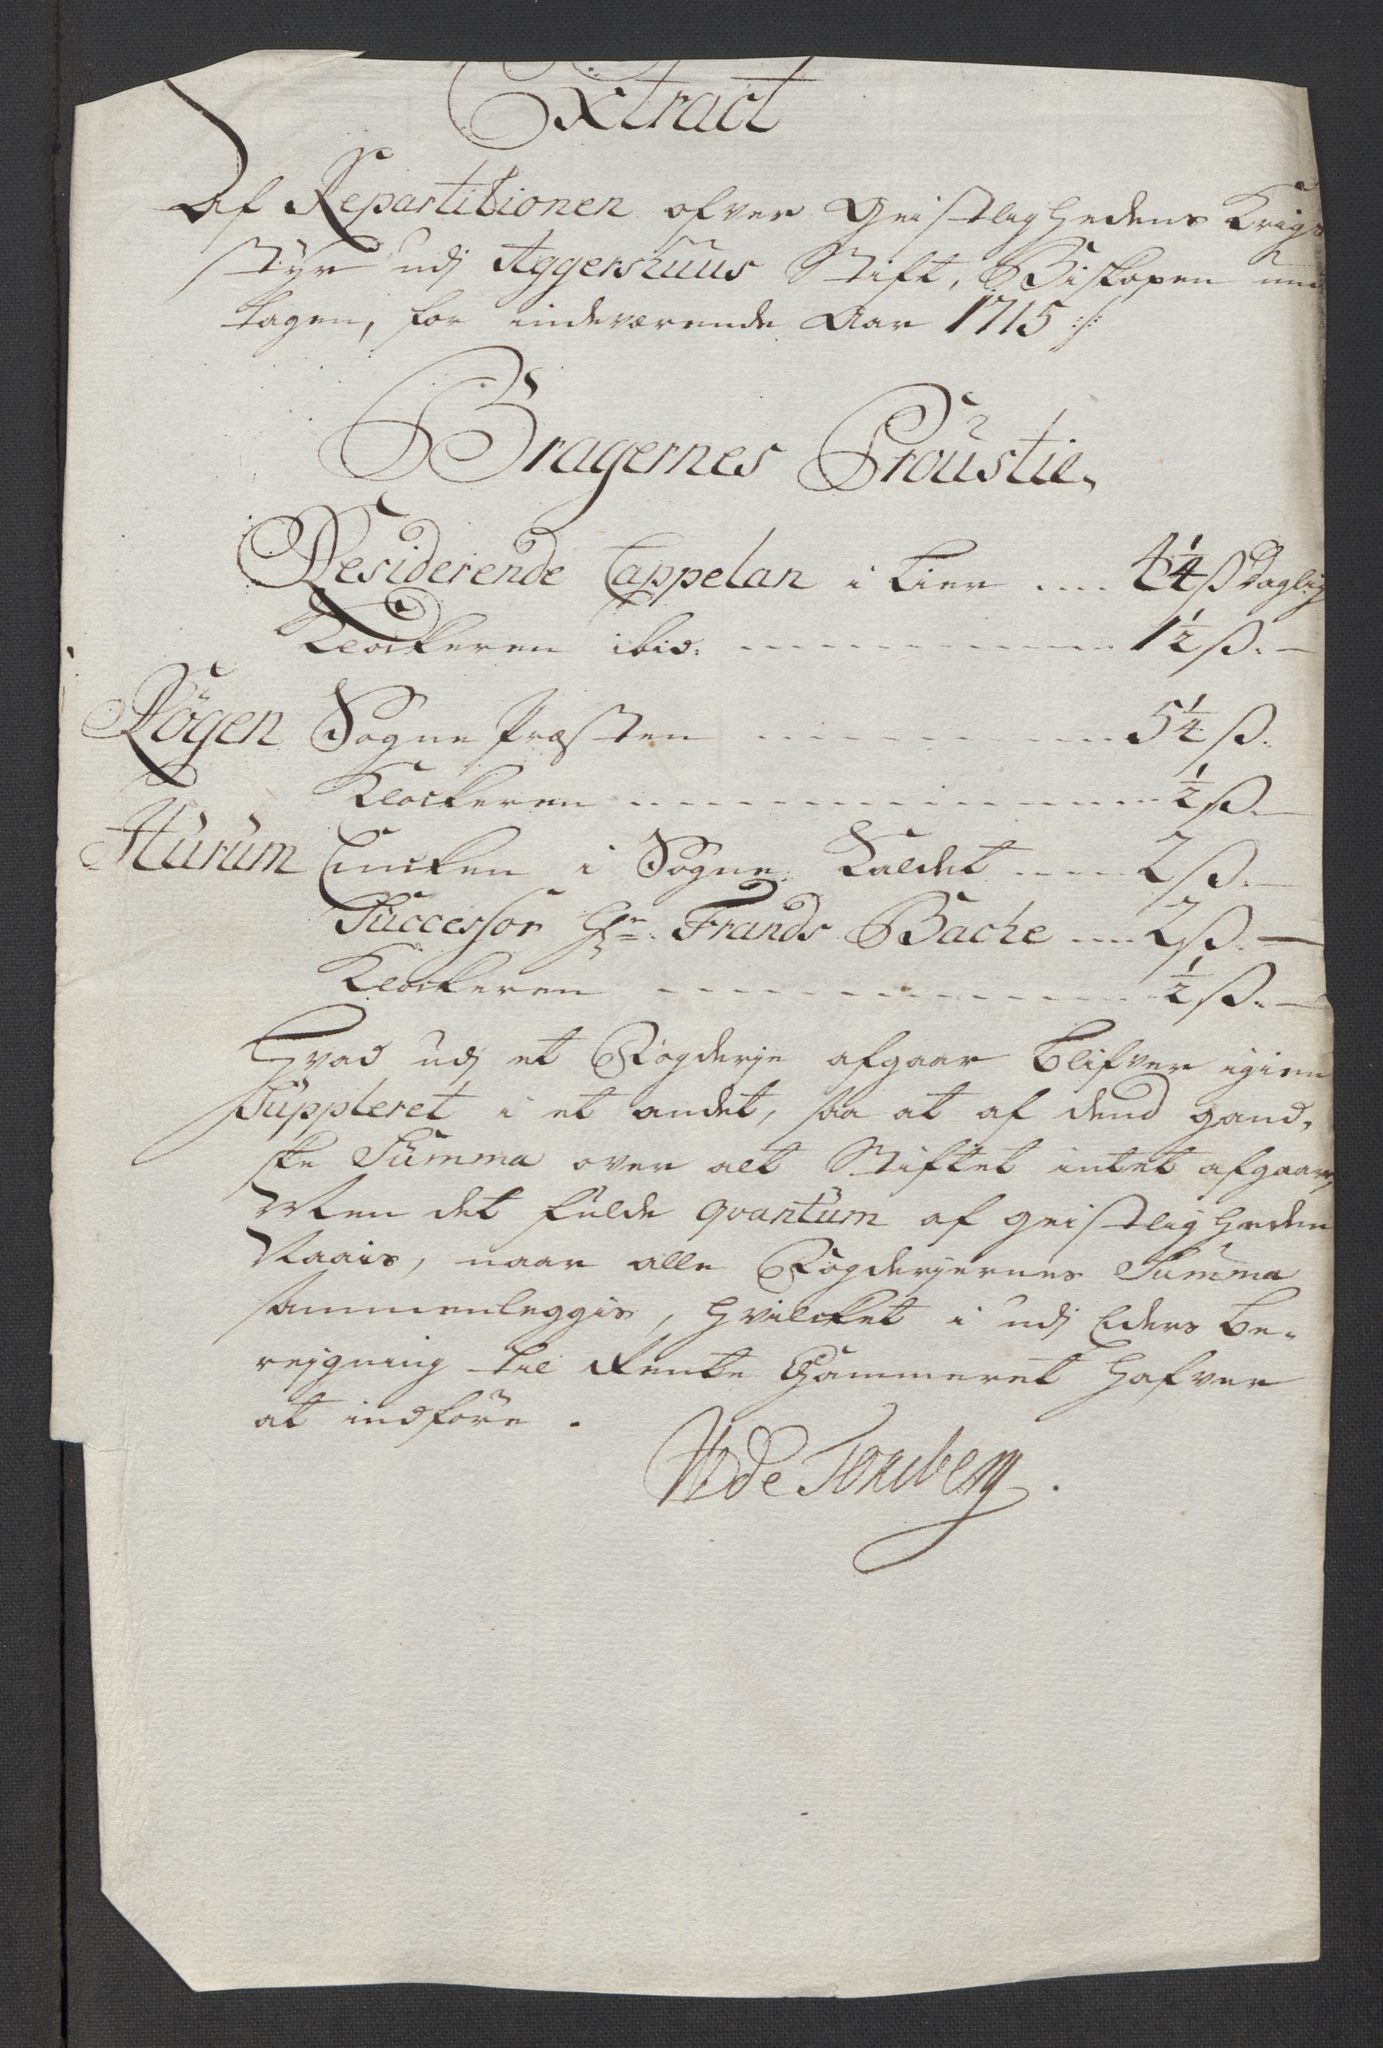 Extract
Af Repartitionen ofver Geistlighedens Krigs
styr udj Aggershuus Stift, Biskopen und
tagen, for indeværende Aar 1715 :/:
Bragernes Proustie,
Residerende Cappelan i Lier .... 4 1/4 ß Daglig
Klockeren ibid: ............ 1 1/2 ß. —
Røgen Sogne Præsten ............ 5 1/4 ß.
Klockeren ............ 1/2 ß. —
Hurum Encken i Sogne Kaldet .... 2 ß. —
Successor Hr. Frands Bache .... 2 ß. —
Klockeren ............ 1/2 ß. —
Hvad udj et Fogderje afgaar blifver igien
Suppleret i et andet, saa at af dend gand,
ske Summa over alt Stiftet intet afgaar,
Men det fulde qvantum af geistligheden
Naais, naar alle Fogderjernes Summa
sammenleggis, hvilcket i udj Eders be-
reigning til Rente Cammeret hafver
at indføre .
WdeTonsberg.